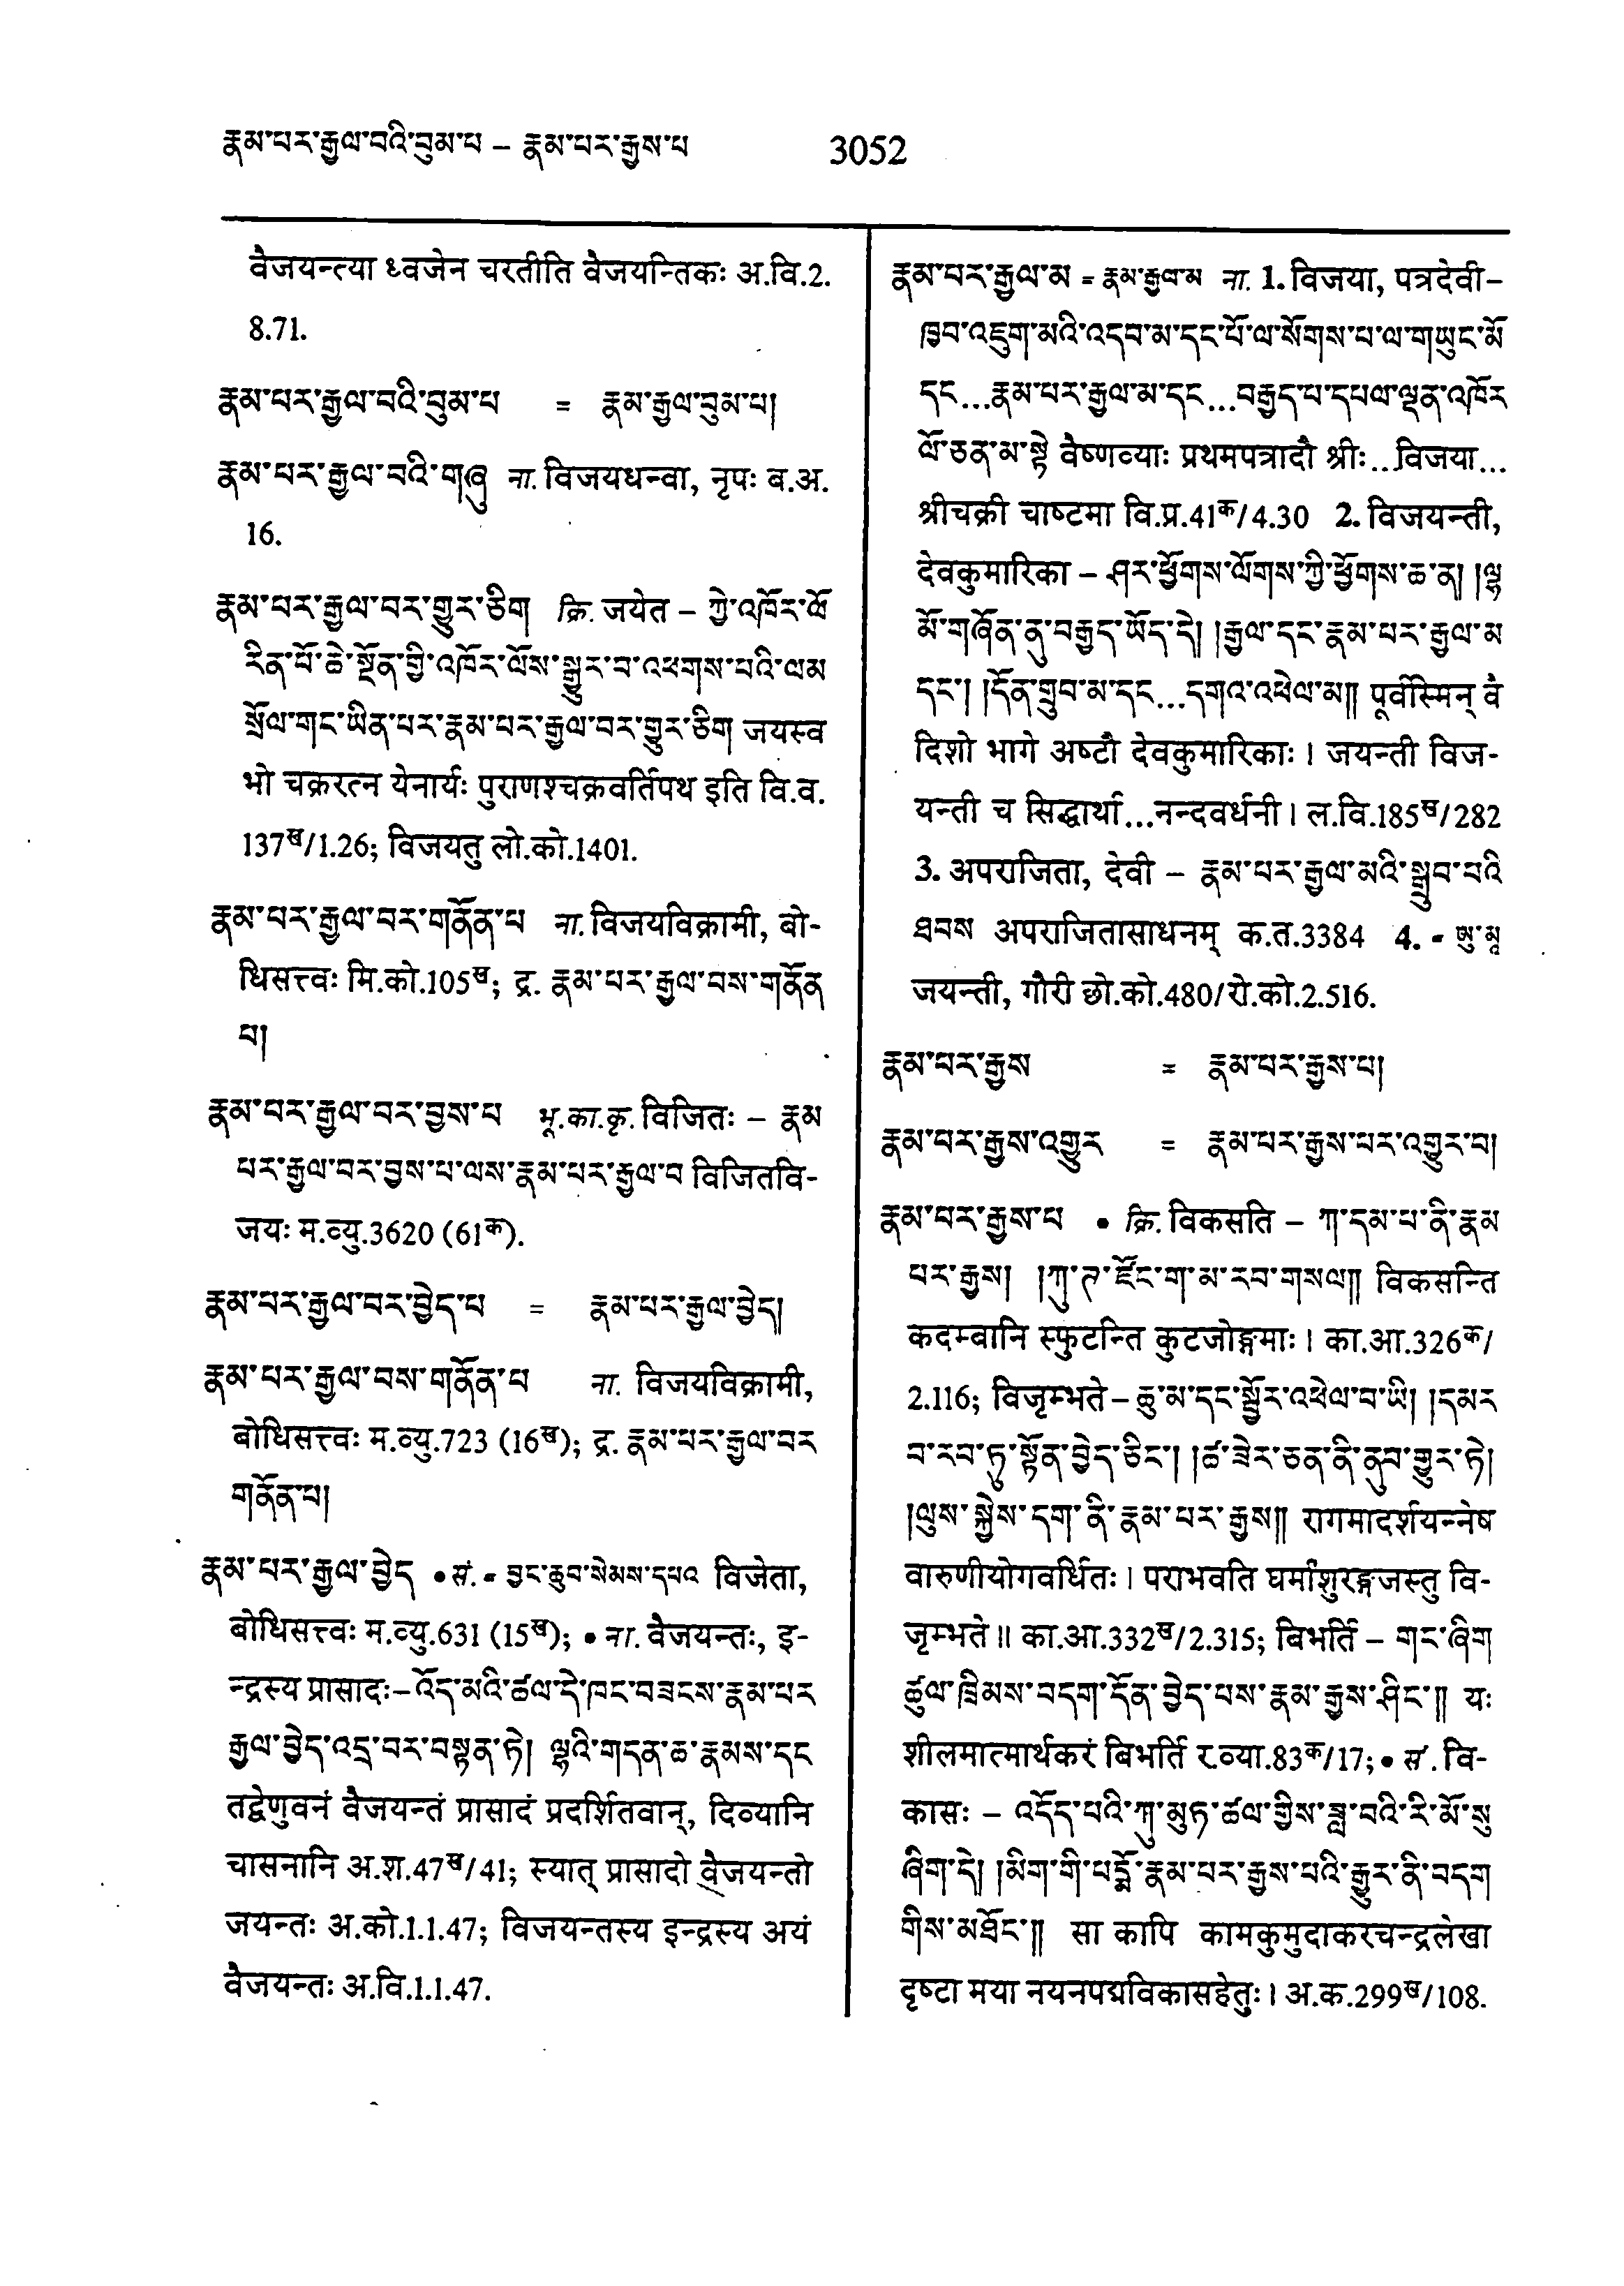 རྣམ་པར་རྒྱལ་བའི་བུམ་པ – རྣམ་པར་རྒྱས་པ 3052
वैजयन्त्या ध्वजेन चरतीति वैजयन्तिकः अ.वि.2.
8.71.
རྣམ་པར་རྒྱལ་བའི་བུམ་པ = རྣམ་རྒྱལ་བུམ་པ།
རྣམ་པར་རྒྱལ་བའི་གཞུ ना. विजयधन्वा, नृपः ब.अ.
16.
རྣམ་པར་རྒྱལ་བར་གྱུར་ཅིག क्रि. जयेत – ཀྱེ་འཁོར་ལོ
རིན་པོ་ཆེ་སྔོན་གྱི་འཁོར་ལོས་སྒྱུར་བ་འཕགས་པའི་ལམ
སྲོལ་གང་ཡིན་པར་རྣམ་པར་རྒྱལ་བར་གྱུར་ཅིག जयस्व
भो चक्ररत्न येनार्यः पुराणश्चक्रवर्तिपथ इति वि.व.
137ख/1.26; विजयतु लो.को.1401.
རྣམ་པར་རྒྱལ་བར་གནོན་པ ना. विजयविक्रामी, बो-
धिसत्त्वः मि.को.105ख; द्र. རྣམ་པར་རྒྱལ་བས་གནོན
པ།
རྣམ་པར་རྒྱལ་བར་བྱས་པ भू.का.कृ. विजितः – རྣམ
པར་རྒྱལ་བར་བྱས་པ་ལས་རྣམ་པར་རྒྱལ་བ विजितवि-
जयः म.व्यु.3620 (61क).
རྣམ་པར་རྒྱལ་བར་བྱེད་པ = རྣམ་པར་རྒྱལ་བྱེད།
རྣམ་པར་རྒྱལ་བས་གནོན་པ ना. विजयविक्रामी,
बोधिसत्त्वः म.व्यु.723 (16ख); द्र. རྣམ་པར་རྒྱལ་བར
གནོན་པ།
རྣམ་པར་རྒྱལ་བྱེད • सं. - བྱང་ཆུབ་སེམས་དཔའ विजेता,
बोधिसत्त्वः म.व्यु.631 (15ख); • ना. वैजयन्तः, इ-
न्द्रस्य प्रासादः – འོད་མའི་ཚལ་དེ་ཁང་བཟངས་རྣམ་པར
རྒྱལ་བྱེད་འདྲ་བར་བསྟན་ཏེ། ལྷའི་གདན་ཆ་རྣམས་དང
तद्वेणुवनं वैजयन्तं प्रासादं प्रदर्शितवान्, दिव्यानि
चासनानि अ.श.47ख/41; स्यात् प्रासादो वैजयन्तो
जयन्तः अ.को.1.1.47; विजयन्तस्य इन्द्रस्य अयं
वैजयन्तः अ.वि.1.1.47.
རྣམ་པར་རྒྱལ་མ = རྣམ་རྒྱལ་མ ना. 1. विजया, पत्रदेवी –
ཁྱབ་འཇུག་མའི་འདབ་མ་དང་པོ་ལ་སོགས་པ་ལ་གཡུང་མོ
དང...རྣམ་པར་རྒྱལ་མ་དང...བརྒྱད་པ་དཔལ་ལྡན་འཁོར
ལོ་ཅན་མ་སྟེ वैष्णव्याः प्रथमपत्रादौ श्रीः...विजया...
श्रीचक्री चाष्टमा वि.प्र.41क/4.30 2. विजयन्ती,
देवकुमारिका – ཤར་ཕྱོགས་ལོགས་ཀྱི་ཕྱོགས་ཆ་ན། །ལྷ
མོ་གཞོན་ནུ་བརྒྱད་ཡོད་དེ། །རྒྱལ་དང་རྣམ་པར་རྒྱལ་མ
དང་། །དོན་གྲུབ་མ་དང...དགའ་འཕེལ་མ༎ पूर्वस्मिन् वै
दिशो भागे अष्टौ देवकुमारिकाः। जयन्ती विज-
यन्ती च सिद्धार्था...नन्दवर्धनी। ल.वि.185ख/282
3. अपराजिता, देवी – རྣམ་པར་རྒྱལ་མའི་སྒྲུབ་པའི
ཐབས अपराजितासाधनम् क.त.3384 4. - ཨུ་མཱ
जयन्ती, गौरी छो.को.480/रो.को.2.516.
རྣམ་པར་རྒྱས = རྣམ་པར་རྒྱས་པ།
རྣམ་པར་རྒྱས་འགྱུར = རྣམ་པར་རྒྱས་པར་འགྱུར་བ།
རྣམ་པར་རྒྱས་པ • क्रि. विकसति – ཀ་དམ་པ་ནི་རྣམ
པར་རྒྱས། །ཀུ་ཊ་ཛོང་ག་མ་རབ་གསལ༎ विकसन्ति
कदम्बानि स्फुटन्ति कुटजोङ्गमाः। का.आ.326क/
2.116; विजृम्भते – ཆུ་མ་དང་སྦྱོར་འཕེལ་བ་ཡི། །དམར
བ་རབ་ཏུ་སྟོན་བྱེད་ཅིང་། །ཚ་ཟེར་ཅན་ནི་ནུབ་གྱུར་ཏེ།
།ལུས་སྐྱེས་དག་ནི་རྣམ་པར་རྒྱས༎ रागमादर्शयन्नेष
वारुणीयोगवर्धितः। पराभवति घर्मांशुरङ्गजस्तु वि-
जृम्भते॥ का.आ.332ख/2.315; बिभर्ति – གང་ཞིག
ཚུལ་ཁྲིམས་བདག་དོན་བྱེད་པས་རྣམ་རྒྱས་ཤིང་༎ यः
शीलमात्मार्थकरं बिभर्ति र.व्या.83क/17; • सं. वि-
कासः – འདོད་པའི་ཀུ་མུཏ་ཚལ་གྱིས་ཟླ་བའི་རི་མོ་སུ
ཞིག་དེ། །མིག་གི་པདྨོ་རྣམ་པར་རྒྱས་པའི་རྒྱུར་ནི་བདག
གིས་མཐོང་༎ सा कापि कामकुमुदाकरचन्द्रलेखा
दृष्टा मया नयनपद्मविकासहेतुः। अ.क.299ख/108.